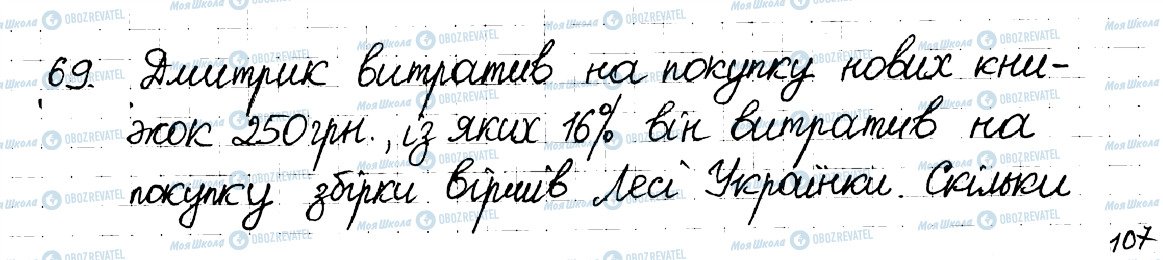 69. Дмитрик витратив на покупку нових кни-
жок 250 грн., із яких 16% він витратив на
покупку збірки віршів Лесі Українки. Скільки
107